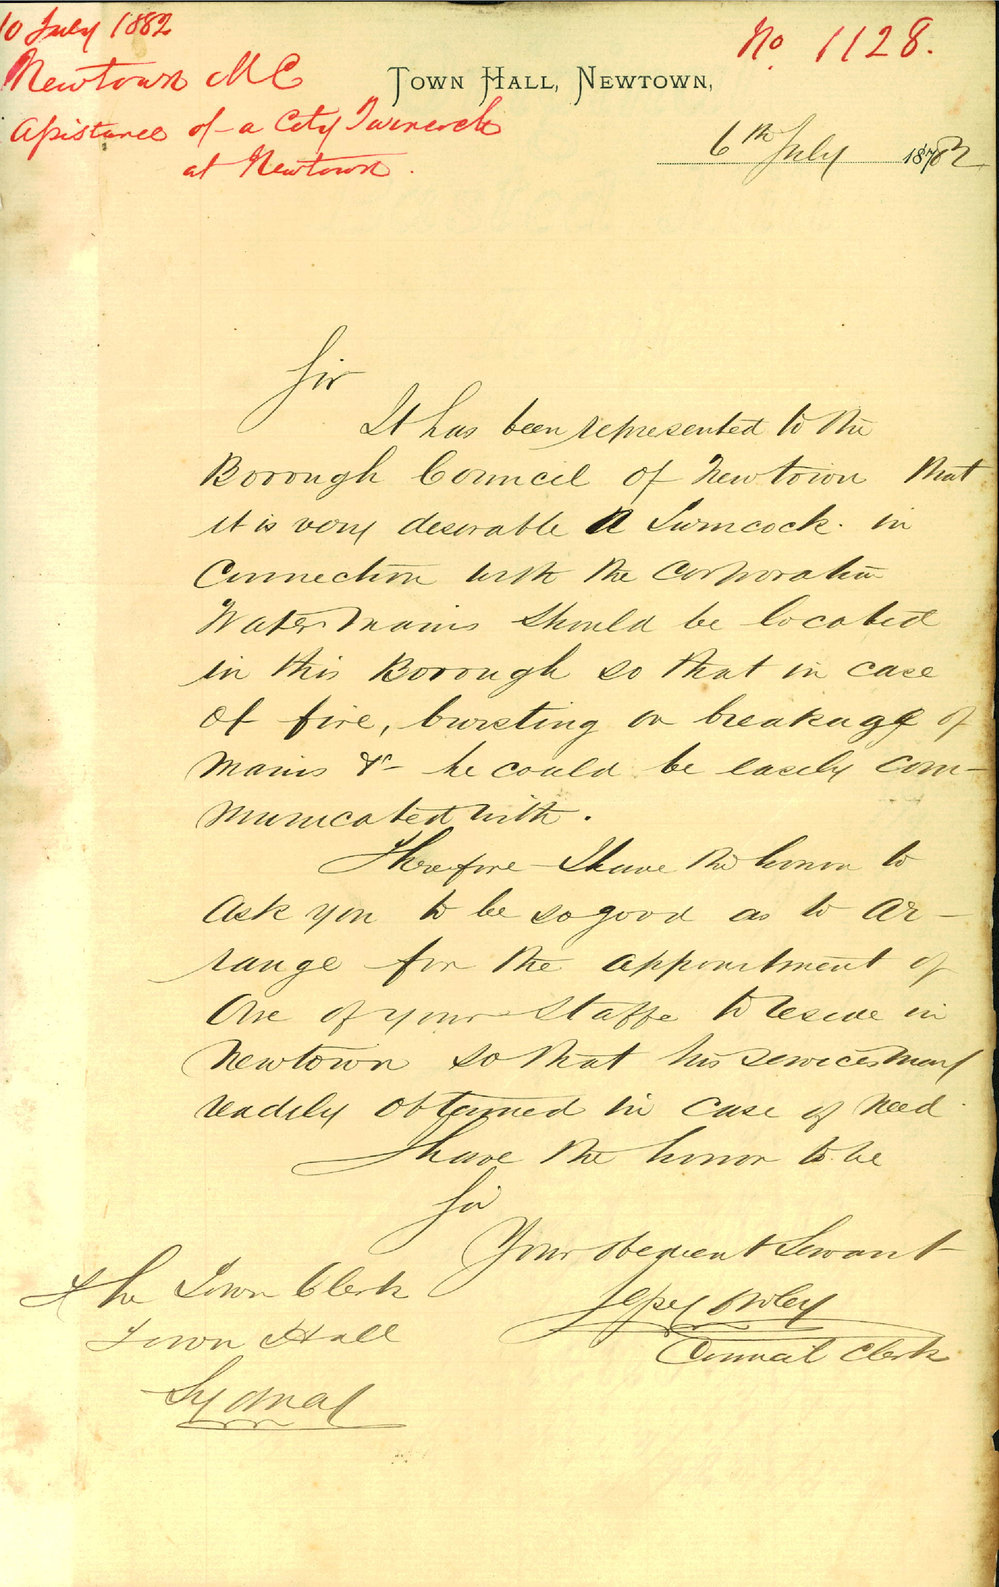 10 July 1882
Newtown M C
Assistance of a City Turncock
at Newtown.
No. 1128.
Town Hall, Newtown,
6th July 1882
Sir
It has been represented to the
Borough Council of Newtown that
it is very desirable a Turncock in
Connection with the Corporation
Water Mains should be located
in this Borough so that in case
of fire, bursting or breakage of
Mains &c he could be easily com-
municated with.
Therefore I have the honor to
ask you to be so good as to ar-
range for the appointment of
One of your Staffe to reside in
Newtown so that his services may
readily obtained in case of need.
I have the honor to be
Sir
Your obedient Servant
Council Clerk
The Town Clerk
Town Hall
Sydney